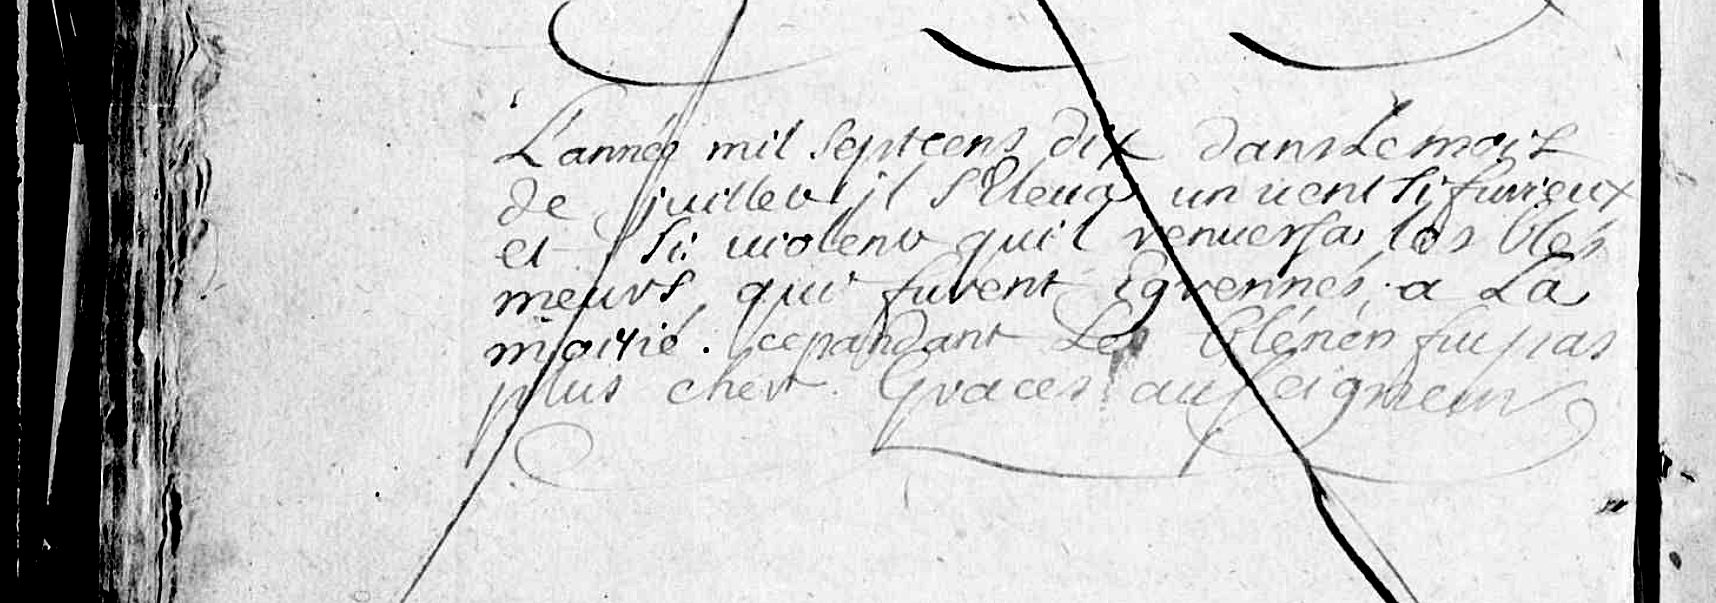 L'année mil septcens dix dans Le mois
de juillet jl s'Eleua un uent si furieux
et si uiolent qu'il renuersa les blés
meurs, qui furent Egrennés, a La
moitié. cepandant Les blé n'en fut pas
plus cher. Graces au seigneur